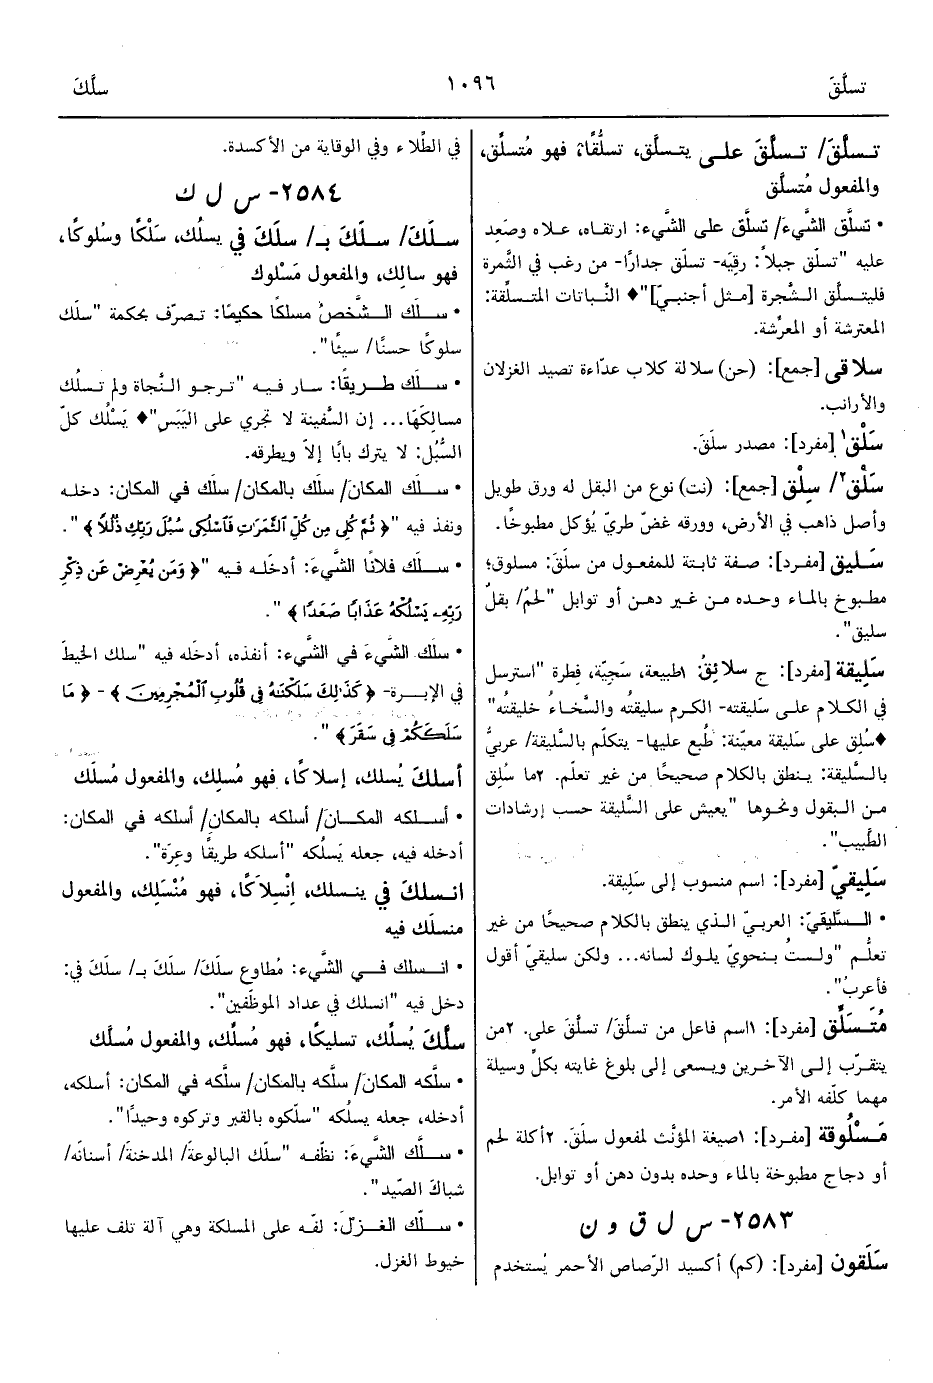 تسلَّقَ
١٠٩٦
سلَّكَ
تـسلَّقَ/ تـسلَّقَ علـى يتـسلَّق، تسلُّقًا، فهو مُتسلِّق،
والمفعول مُتسلَّق
• تسلَّق الشَّيءَ/ تسلَّق على الشَّيء: ارتقاه، علاه وصَعِد
عليه "تسلَّق جبلاً: رقِيَه- تسلَّق جدارًا- من رغب في الثَّمرة
فليتسلَّق الشَّجرة [مثل أجنبيّ]"♦ النَّباتات المتسلِّقة:
المعترشة أو المعرِّشة.
سلاقي [جمع]: (حن) سلالة كلاب عدّاءة تصيد الغزلان
والأرانب.
سَلْق١ [مفرد]: مصدر سلَقَ.
سَلْق٢/ سِلْق [جمع]: (نت) نوع من البقل له ورق طويل
وأصل ذاهب في الأرض، وورقه غضّ طريّ يُؤكل مطبوخًا.
سَليق [مفرد]: صفة ثابتة للمفعول من سلَقَ: مسلوق؛
مطبوخ بالماء وحده من غير دهن أو توابل "لحمٌ/ بقلٌ
سليق".
سَلِيقة [مفرد]: ج سلائِقُ ١طبيعة، سَجِيّة، فِطرة "استرسل
في الكلام على سَليقته- الكرم سليقتُه والسَّخاء خليقتُه"
♦سُلِق على سَليقة معيّنة: طُبع عليها- يتكلّم بالسَّليقة/ عربيٌّ
بالسَّليقة: ينطق بالكلام صحيحًا من غير تعلّم. ٢ما سُلِق
من البقول ونحوها "يعيش على السَّليقة حسب إرشادات
الطَّبيب".
سَلِيقيّ [مفرد]: اسم منسوب إلى سَلِيقة.
• السَّليقيّ: العربيّ الذي ينطق بالكلام صحيحًا من غير
تعلُّم "ولستُ بنحويّ يلوك لسانه... ولكن سليقيّ أقول
فأعربُ".
مُتَسَلِّق [مفرد]: ١اسم فاعل من تسلَّقَ/ تسلَّقَ على. ٢من
يتقرّب إلى الآخرين ويسعى إلى بلوغ غايته بكلّ وسيلة
مهما كلّفه الأمر.
مَسْلُوقة [مفرد]: ١صيغة المؤنَّث لمفعول سلَقَ. ٢أكلة لحم
أو دجاج مطبوخة بالماء وحده بدون دهن أو توابل.
٢٥٨٣- س ل ق و ن
سَلَقون [مفرد]: (كم) أكسيد الرّصاص الأحمر يُستخدم
في الطِّلاء وفي الوقاية من الأكسدة.
٢٥٨٤- س ل ك
سلَكَ/ سلَكَ بـ/ سلَكَ في يسلُك، سَلْكًا وسُلوكًا،
فهو سالِك، والمفعول مَسْلوك
• سلَك الشَّخصُ مسلكًا حكيمًا: تصرّف بحكمة "سلَك
سلوكًا حسنًا/ سيئًا".
• سلَك طريقًا: سار فيه "ترجو النَّجاة ولم تسلُك
مسالكَهَا... إن السَّفينة لا تجري على اليَبَس"♦ يَسْلُك كلّ
السُّبُل: لا يترك بابًا إلاّ ويطرقه.
• سلَك المكانَ/ سلَك بالمكان/ سلَك في المكان: دخله
ونفذ فيه "﴿ ثُمَّ كُلِي مِن كُلِّ الثَّمَرَاتِ فَاسْلُكِي سُبُلَ رَبِّكِ ذُلُلاً ﴾".
• سلَك فلانًا الشَّيءَ: أدخلَه فيه "﴿ وَمَن يُعْرِضْ عَن ذِكْرِ
رَبِّهِ يَسْلُكْهُ عَذَابًا صَعَدًا ﴾".
• سلَك الشَّيءَ في الشَّيء: أنفذه، أدخَله فيه "سلك الخيطَ
في الإبرة- ﴿ كَذَٰلِكَ سَلَكْنَاهُ فِي قُلُوبِ الْمُجْرِمِينَ ﴾ - ﴿ مَا
سَلَكَكُمْ فِي سَقَرَ ﴾".
أسلكَ يُسلك، إسلاكًا، فهو مُسلِك، والمفعول مُسلَك
• أسلكه المكانَ/ أسلكه بالمكان/ أسلكه في المكان:
أدخله فيه، جعله يَسلُكه "أسلكه طريقًا وعِرَة".
انسلكَ في ينسلك، اِنْسِلاكًا، فهو مُنْسَلِك، والمفعول
منسلَك فيه
• انسلك في الشَّيء: مُطاوع سلَكَ/ سلَكَ بـ/ سلَكَ في:
دخل فيه "انسلك في عداد الموظّفين".
سلَّكَ يُسلِّك، تسليكًا، فهو مُسلِّك، والمفعول مُسلَّك
• سلّكه المكانَ/ سلّكه بالمكان/ سلّكه في المكان: أسلكه،
أدخله، جعله يسلُكه "سلّكوه بالقبر وتركوه وحيدًا".
• سلَّك الشَّيءَ: نظّفه "سلّك البالوعةَ/ المدخنةَ/ أسنانَه/
شباكَ الصّيد".
• سلَّك الغزلَ: لفّه على المسلكة وهي آلة تلف عليها
خيوط الغزل.